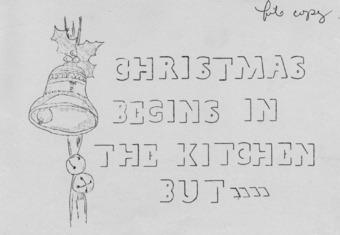 file copy
CHRISTMAS
BEGINS IN
THE KITCHEN
BUT,,,,